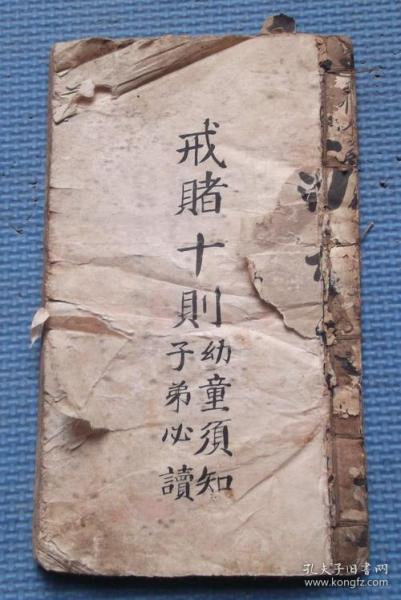 戒賭十則
幼童須知
子弟必讀
孔夫子旧书网
www.kongfz.com